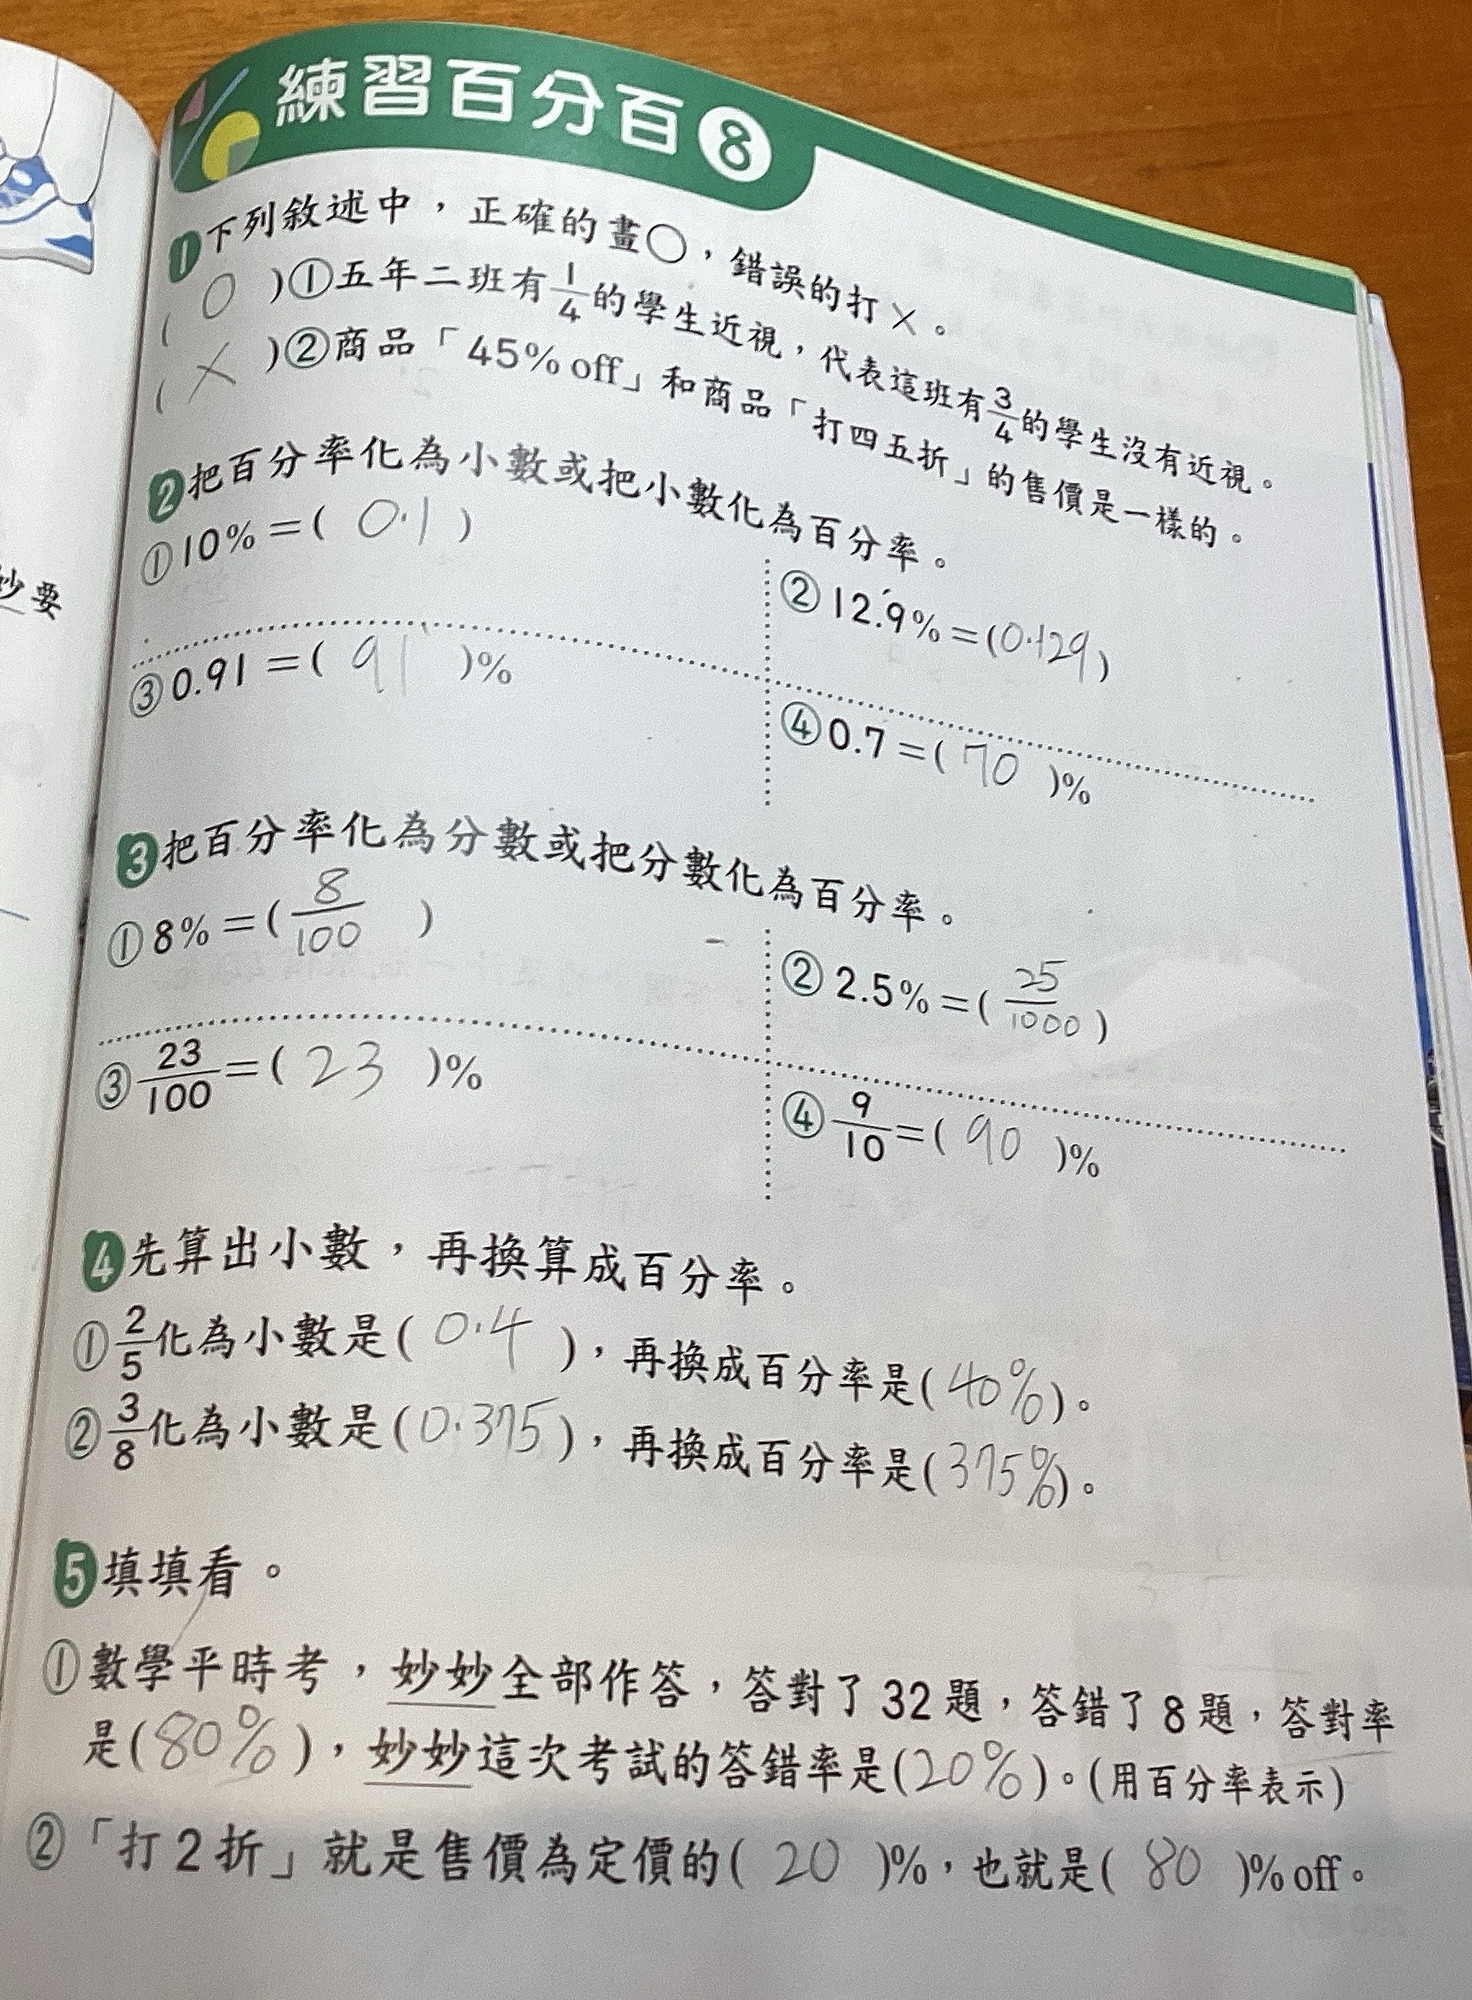 練習百分百8
1下列敘述中，正確的畫○，錯誤的打×。
( O )①五年二班有1/4的學生近視，代表這班有3/4的學生沒有近視。
( × )②商品「45% off」和商品「打四五折」的售價是一樣的。
2把百分率化為小數或把小數化為百分率。
①10%=( 0.1 )
②12.9%=(0.129)
③0.91=( 91 )%
④0.7=( 70 )%
3把百分率化為分數或把分數化為百分率。
①8%=( 8/100 )
②2.5%=( 25/1000 )
③23/100=( 23 )%
④9/10=( 90 )%
4先算出小數，再換算成百分率。
①2/5化為小數是( 0.4 )，再換成百分率是(40%)。
②3/8化為小數是(0.375)，再換成百分率是(375%)。
5填填看。
①數學平時考，妙妙全部作答，答對了32題，答錯了8題，答對率
是(80%)，妙妙這次考試的答錯率是(20%)。(用百分率表示)
②「打2折」就是售價為定價的( 20 )%，也就是( 80 )% off。
妙要